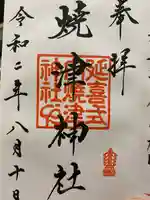 奉拝
延喜式
焼津
神社
焼津神社
令和二年八月十日